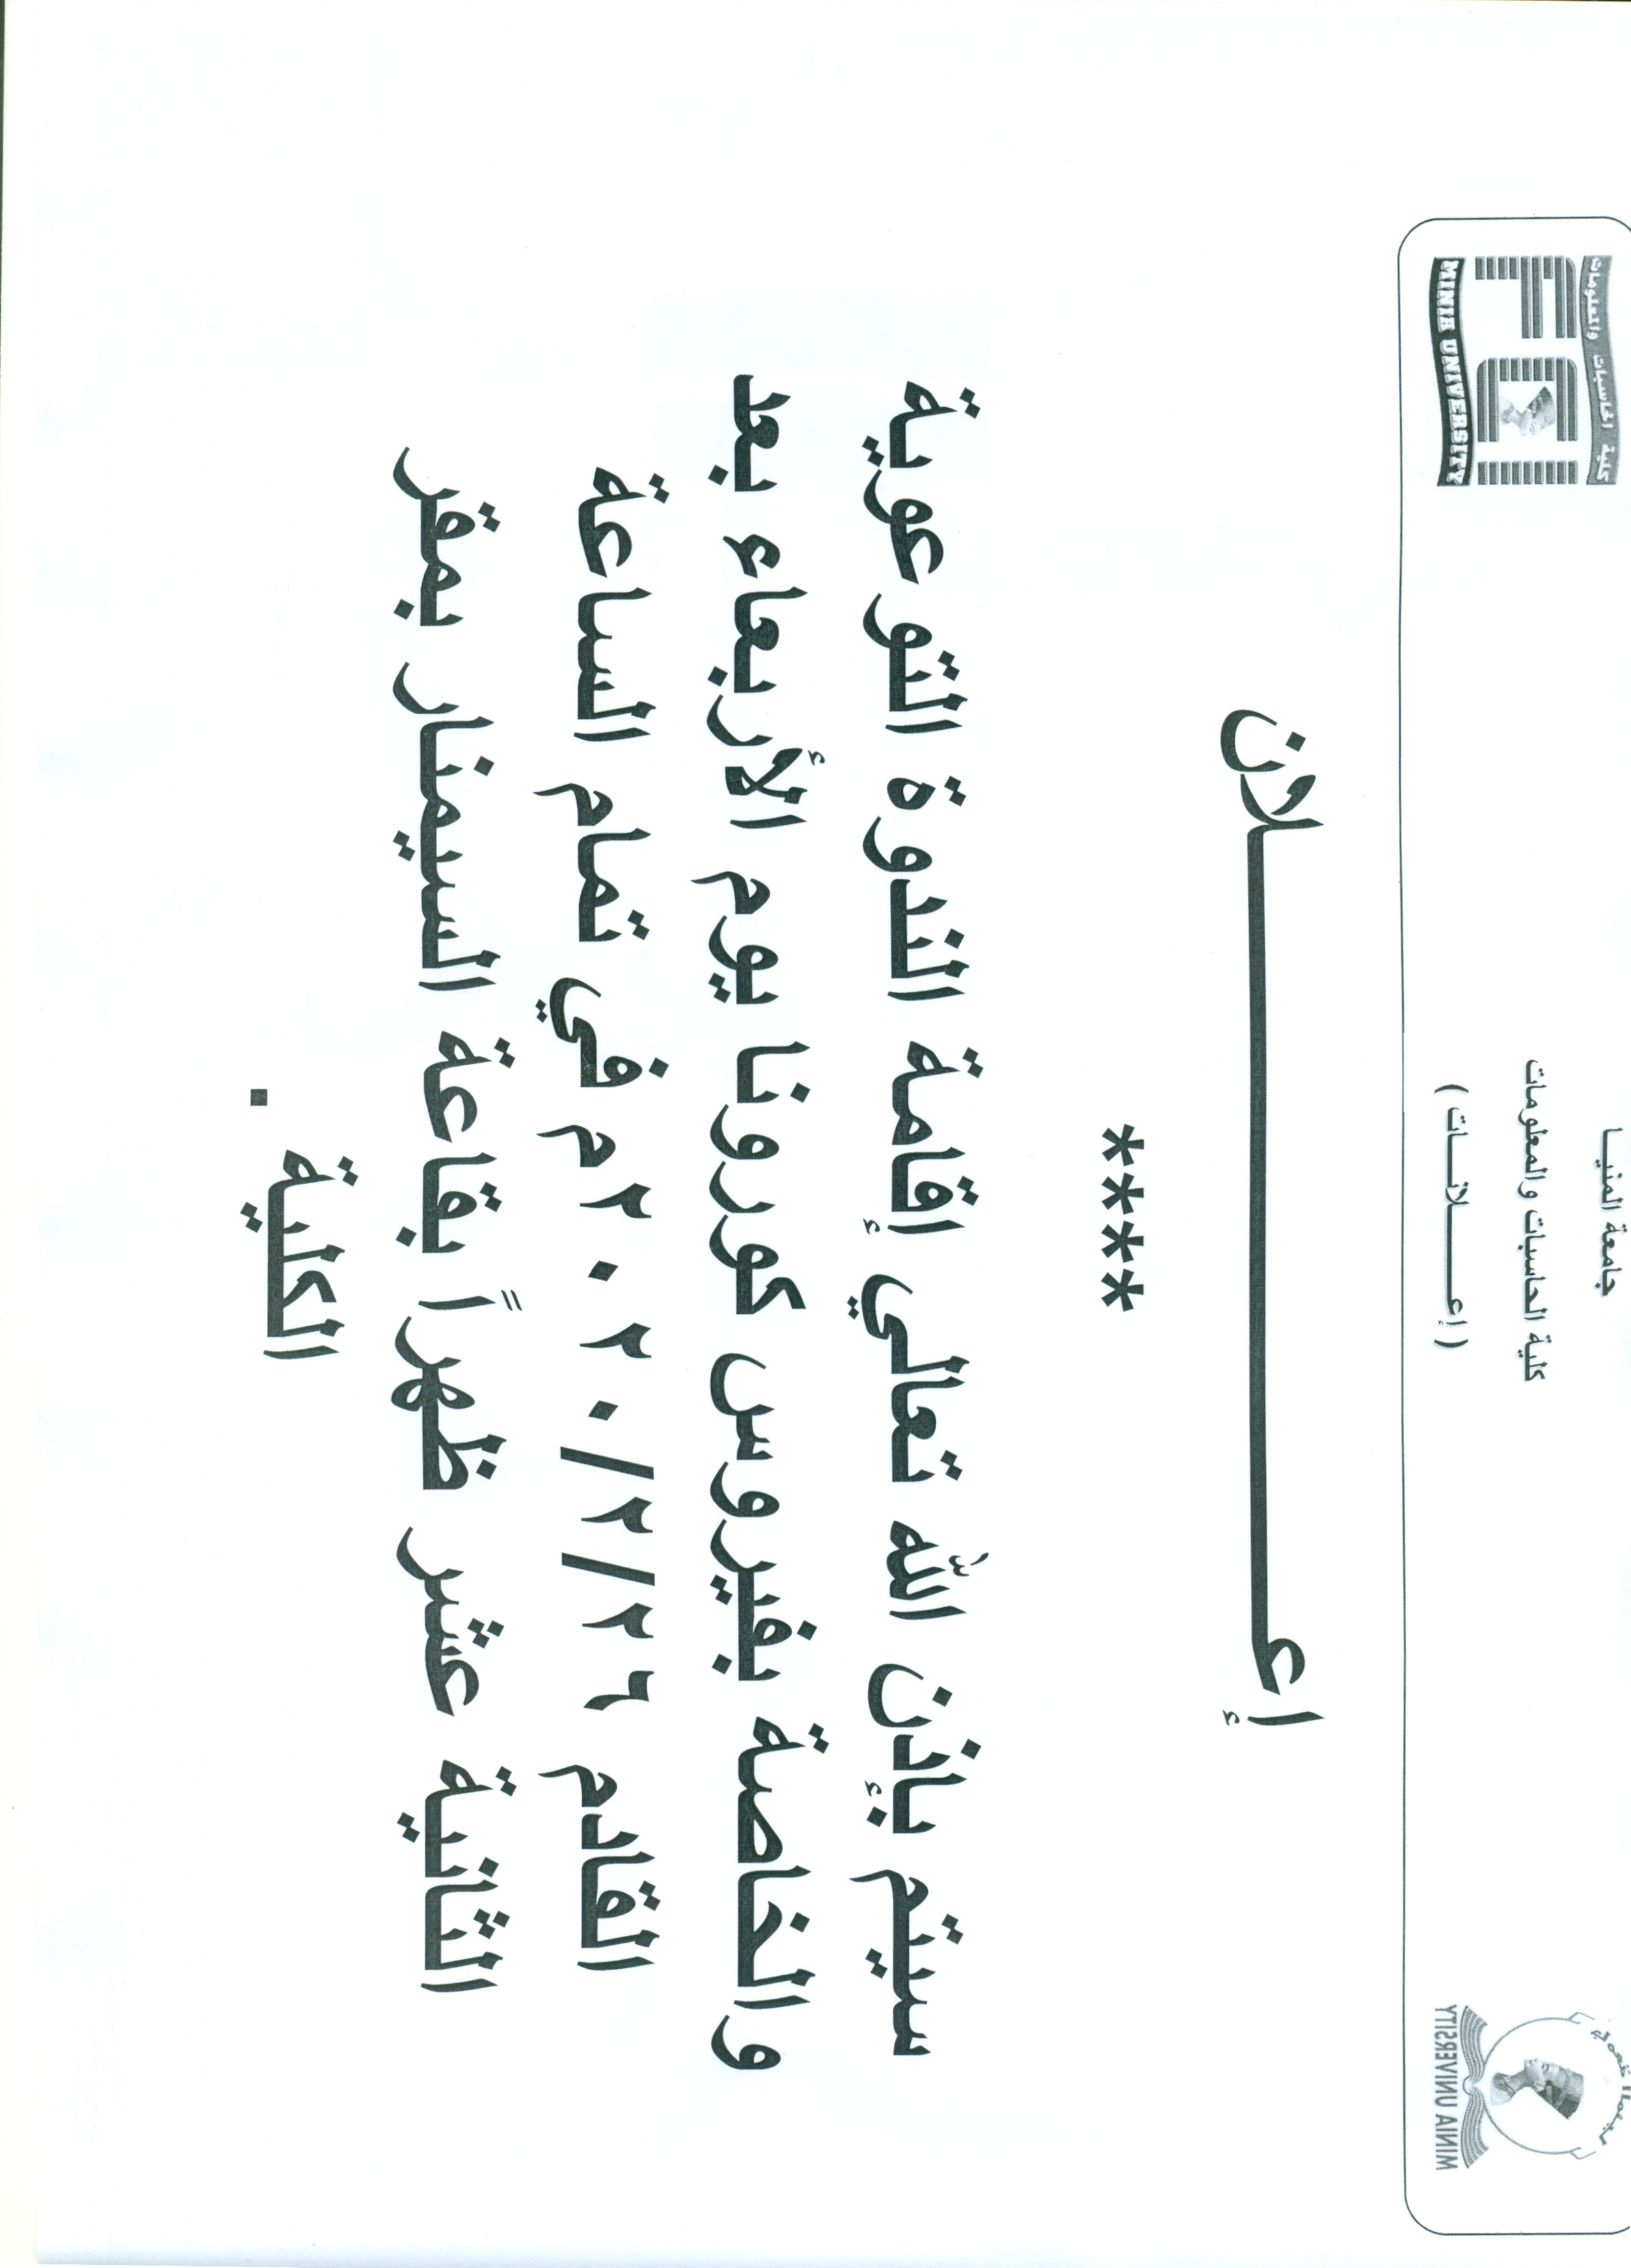 جامعة المنيا
كلية الحاسبات والمعلومات
( إعــــــلانــات )
كلية الحاسبات والمعلومات
FCI
MINIA UNIVERSITY
MINIA UNIVERSITY
إعـــــــــــــــــــــلان
****
سيتم بإذن الله تعالي إقامة الندوة التوعوية
والخاصة بفيروس كورونا يوم الأربعاء بعد
القادم ٢٦/٢/٢٠٢٠م في تمام الساعة
الثانية عشر ظهراً بقاعة السيمنار بمقر
الكلية
.